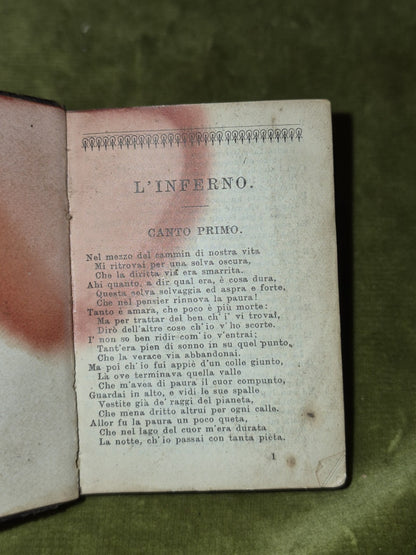 L'INFERNO.
CANTO PRIMO.
Nel mezzo del cammin di nostra vita
Mi ritrovai per una selva oscura,
Che la diritta via era smarrita.
Ahi quanto, a dir qual era, è cosa dura,
Questa selva selvaggia ed aspra e forte,
Che nel pensier rinnova la paura!
Tanto è amara, che poco è più morte:
Ma per trattar del ben ch'i' vi trovai,
Dirò dell'altre cose ch'io v'ho scorte.
I' non so ben ridir com'io v'entrai;
Tant'era pien di sonno in su quel punto,
Che la verace via abbandonai.
Ma poi ch'io fui appiè d'un colle giunto,
Là ove terminava quella valle
Che m'avea di paura il cuor compunto,
Guardai in alto, e vidi le sue spalle
Vestite già de' raggi del pianeta,
Che mena dritto altrui per ogni calle.
Allor fu la paura un poco queta,
Che nel lago del cuor m'era durata
La notte, ch'io passai con tanta pièta.
1